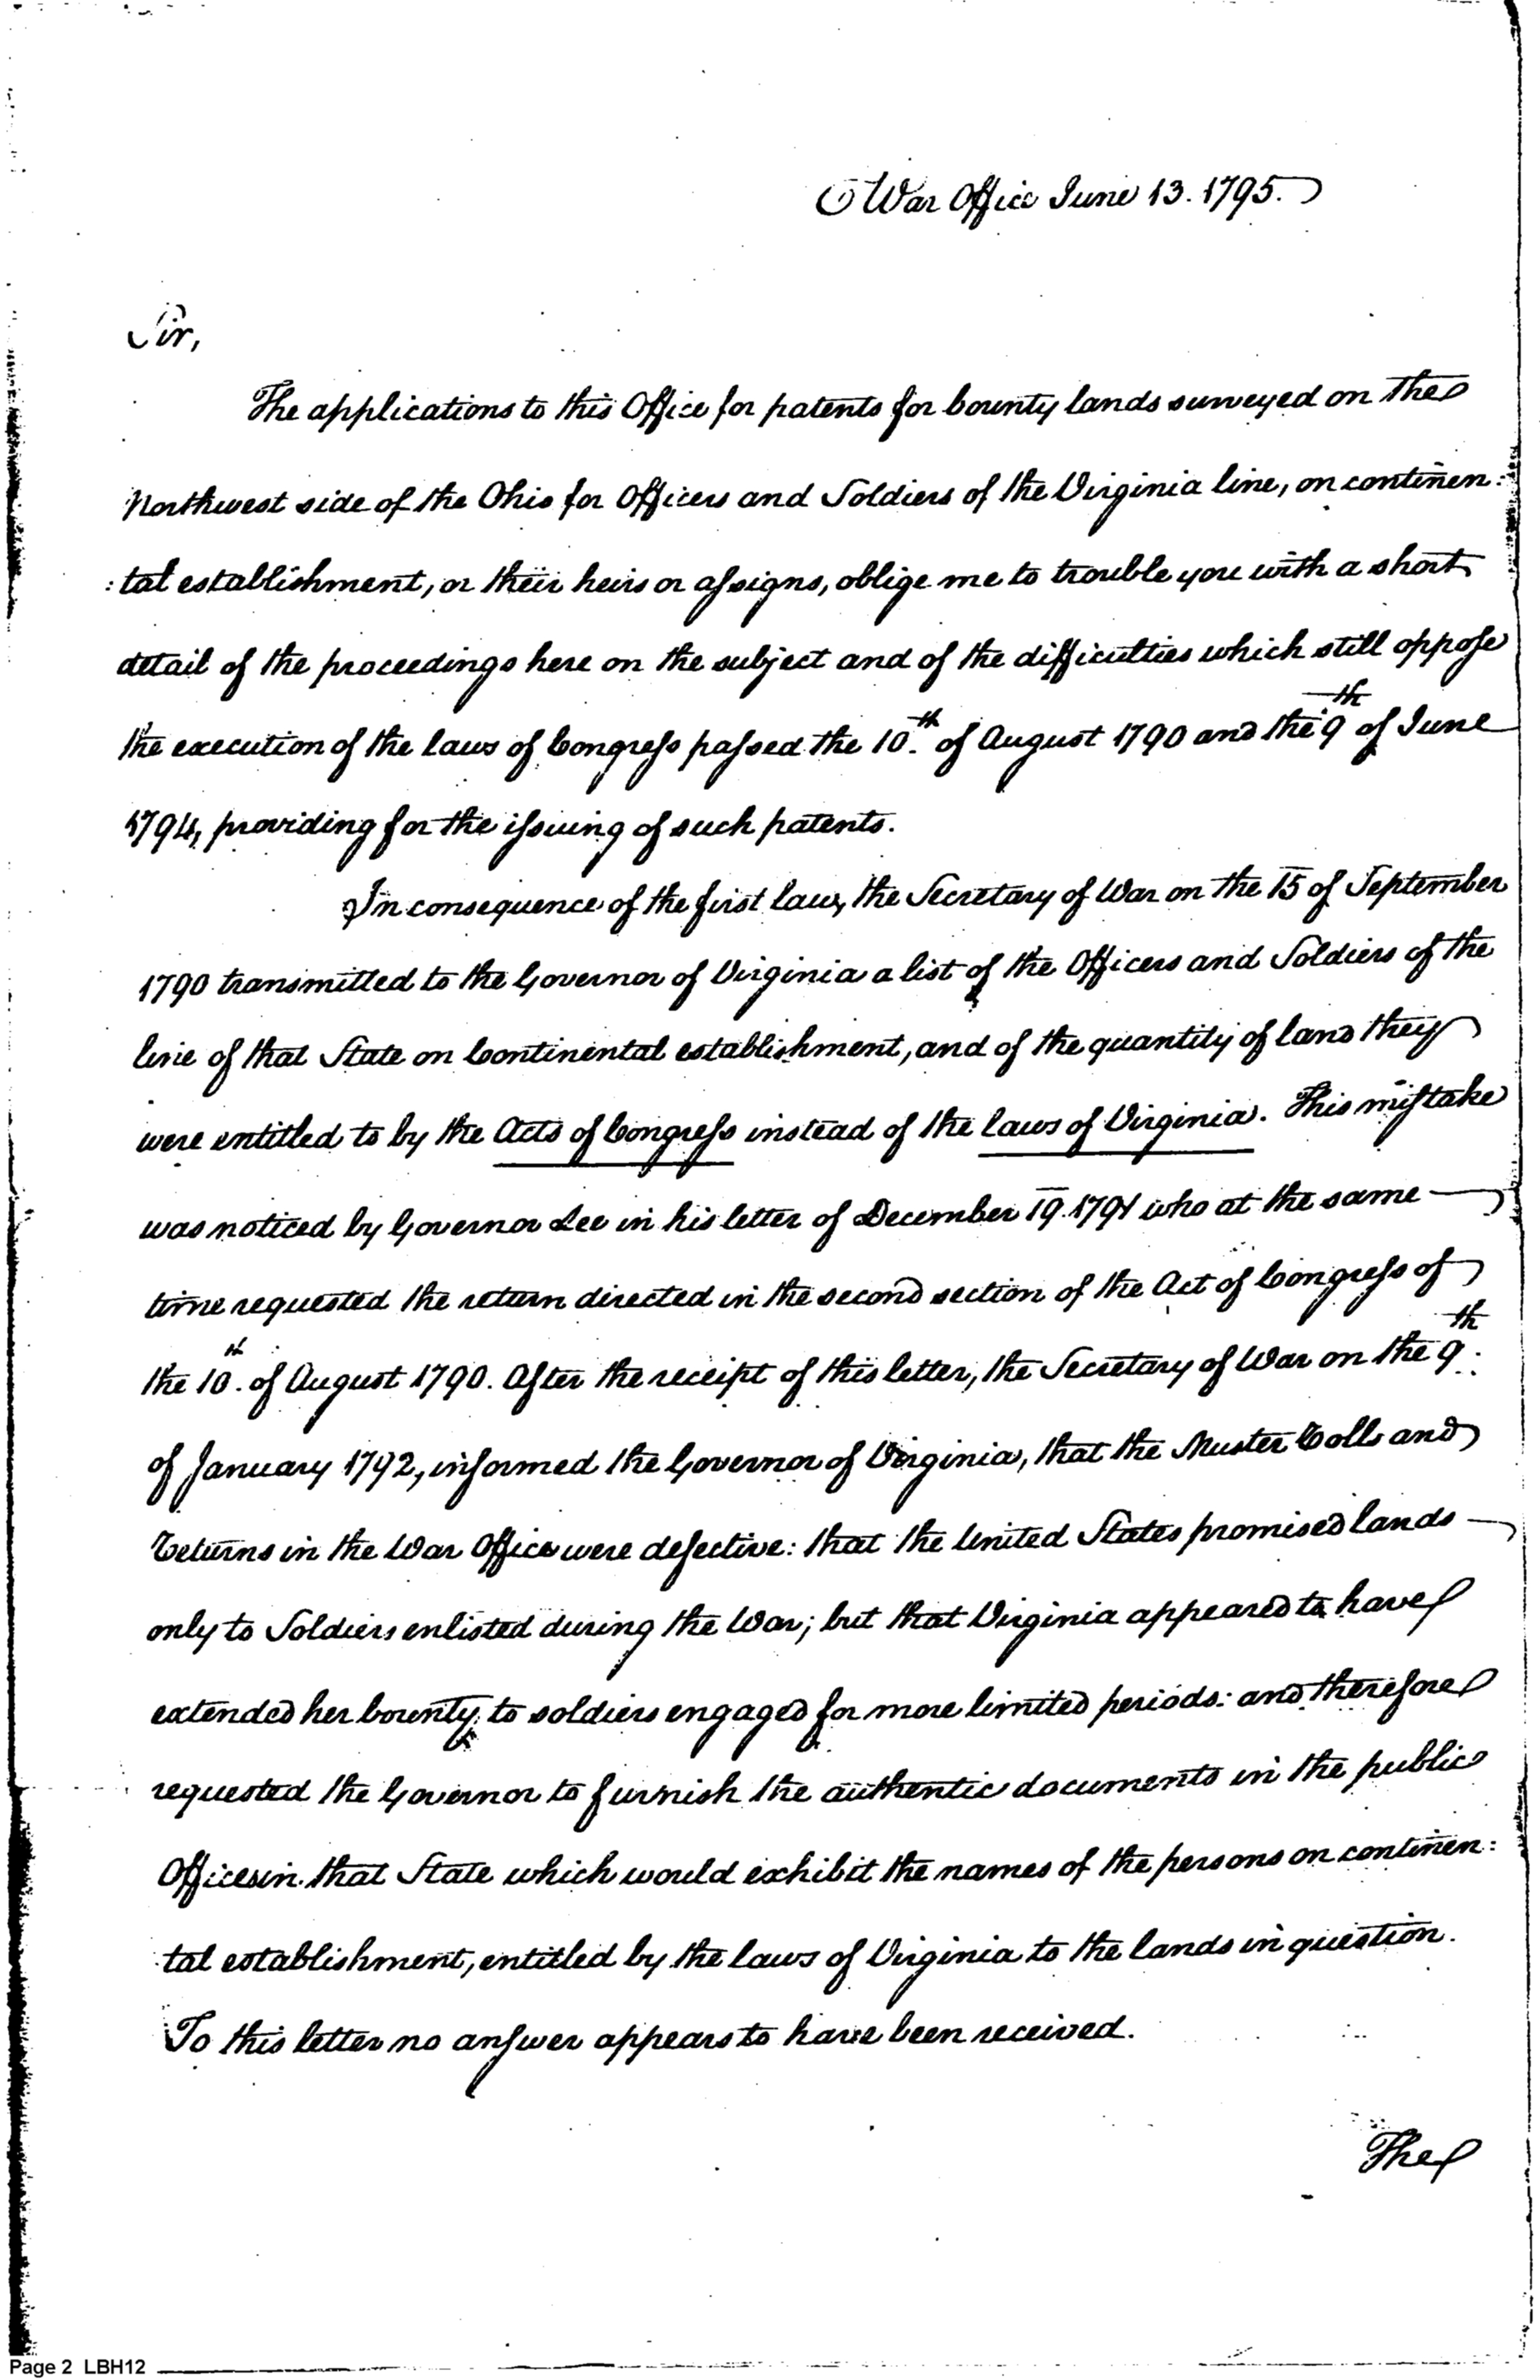 War Office June 13. 1795.
Sir,
The applications to this Office for patents for bounty lands surveyed on the
Northwest side of the Ohio for Officers and Soldiers of the Virginia line, on continen:
:tal establishment, or their heirs or assigns, oblige me to trouble you with a short
detail of the proceedings here on the subject and of the difficulties which still oppose
the execution of the laws of Congress passed the 10th of August 1790 and the 9th of June
1794, providing for the issuing of such patents.
In consequence of the first law, the Secretary of War on the 15 of September
1790 transmitted to the Governor of Virginia a list of the Officers and Soldiers of the
line of that State on Continental establishment, and of the quantity of land they
were entitled to by the Acts of Congress instead of the laws of Virginia. This mistake
was noticed by Governor Lee in his letter of December 19. 1791 who at the same
time requested the return directed in the second section of the Act of Congress of
the 10th. of August 1790. After the receipt of this letter, the Secretary of War on the 9th.
of January 1792, informed the Governor of Virginia, that the Muster Rolls and
Returns in the War Office were defective: that the United States promised lands
only to Soldiers enlisted during the War; but that Virginia appeared to have
extended her bounty to soldiers engaged for more limited periods: and therefore
requested the Governor to furnish the authentic documents in the public
Offices in that State which would exhibit the names of the persons on continen:
tal establishment, entitled by the laws of Virginia to the lands in question.
To this letter no answer appears to have been received.
The
Page 2 LBH12